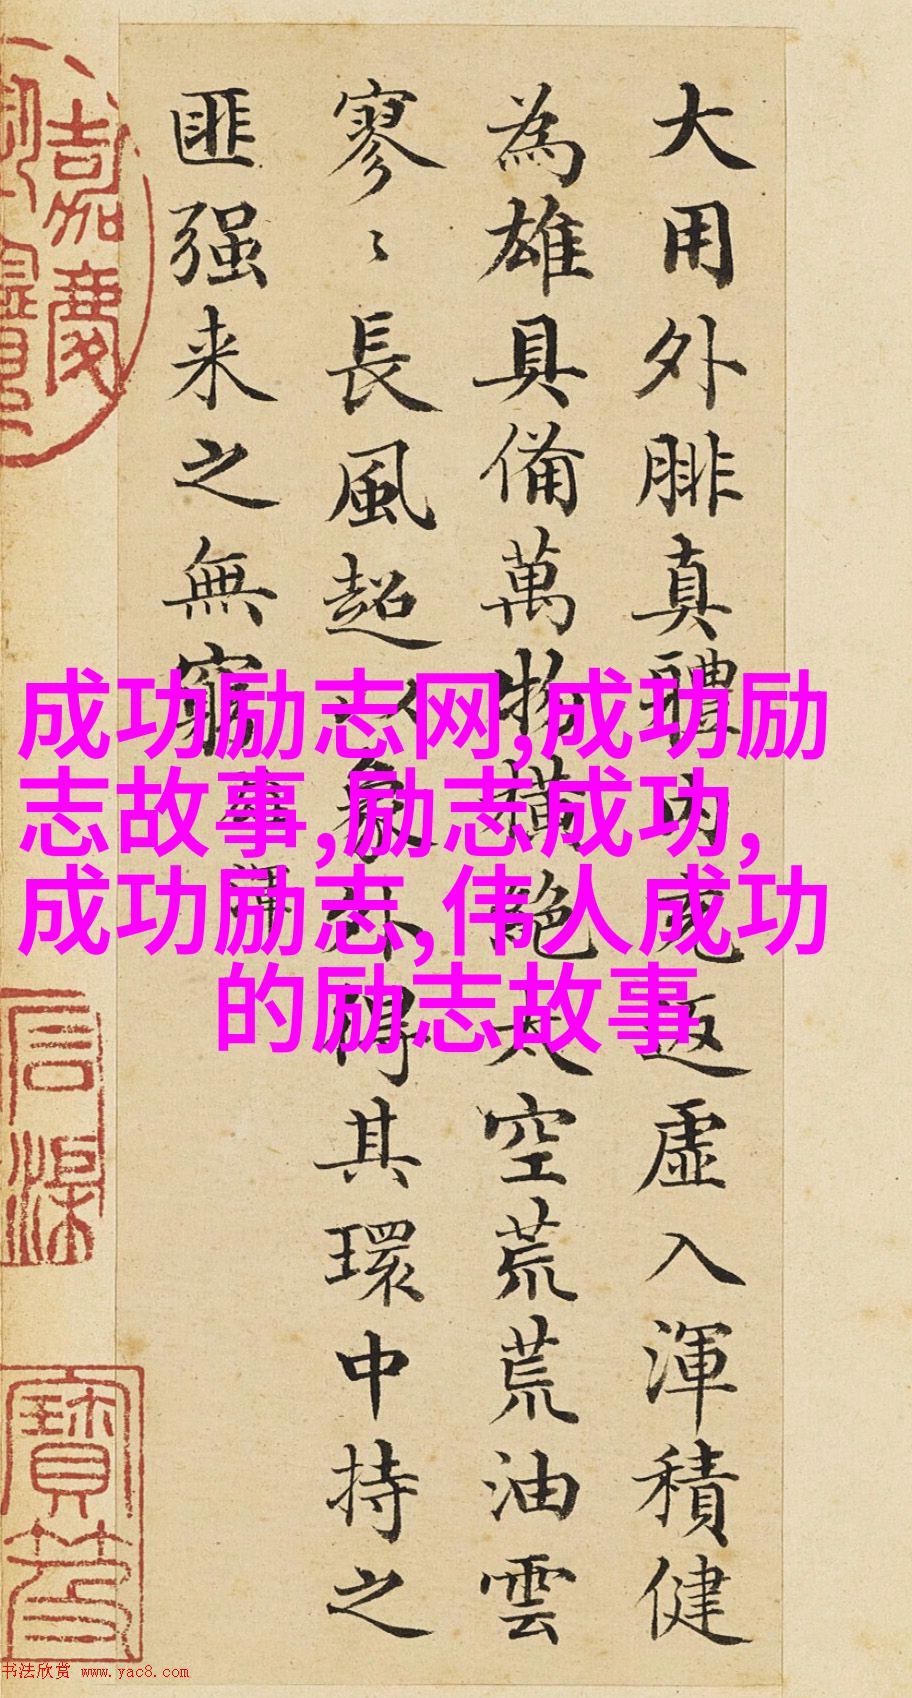 大用外腓真體内充返虛入渾積健
為雄具備萬物橫絶太空荒荒油雲
寥〻長風超以象外得其環中持之
匪强来之無窮 雄渾
嘉慶
成功励志网,成功励
志故事,励志成功,
成功励志,伟人成功
的励志故事
书法欣赏 www.yac8.com